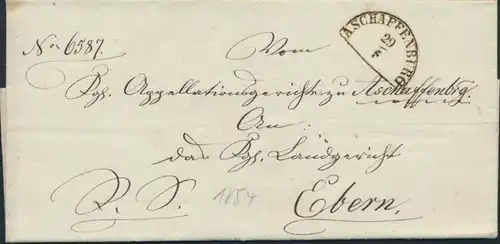 No 6587.
Vom
ASCHAFFENBURG
29
Kgl. Appellationsgerichte zu Aschaffenbrg.
An
das Kgl. Landgericht
R. S.
1854
Ebern.